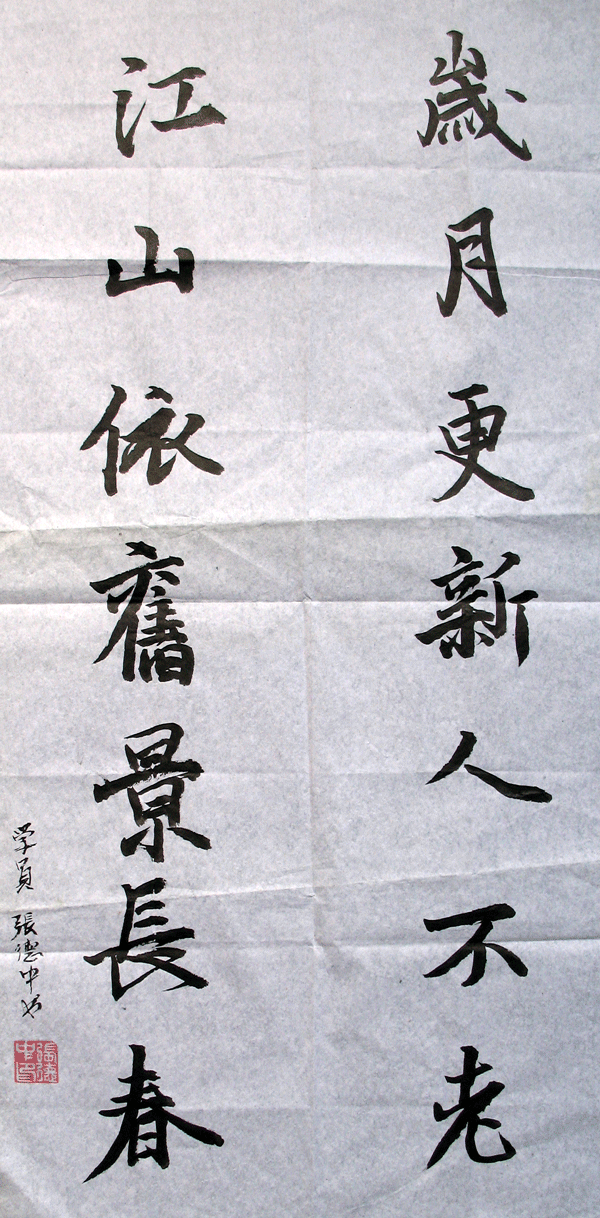 歲月更新人不老
江山依舊景長春
学員 張德中书
張德中印